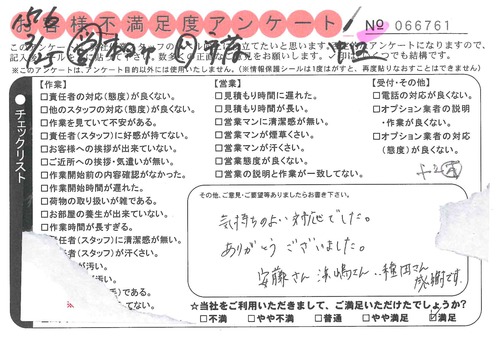 お客様不満足度アンケート
№ 066761
このアンケートは
に役立てたいと思います。
アンケートになりますので、
記入
数多くの正直な
見をお願いします。
いつでも結構です。
※このアンケートは、アンケート目的以外には使用いたしません。(※情報保護シールは1度はがすと、再度貼りなおすことはできません)
チェックリスト
【作業】
□責任者の対応(態度)が良くない。
□他のスタッフの対応(態度)が良くない。
□作業を見ていて不安がある。
□責任者(スタッフ)に好感が持てない。
□お客様への挨拶が出来ていない。
□ご近所への挨拶・気遣いが無い。
□作業開始前の内容確認がなかった。
□作業開始時間が遅れた。
□荷物の取り扱いが雑である。
□お部屋の養生が出来ていない。
□作業時間が長すぎる。
任者(スタッフ)に清潔感が無い。
者(スタッフ)が汗くさい。
が汚い。
汚い。
れである。
【営業】
□見積もり時間に遅れた。
□見積もり時間が長い。
□営業マンに清潔感が無い。
□営業マンが煙草くさい。
□営業マンが汗くさい。
□営業態度が良くない。
□営業の説明と作業が一致してない。
【受付・その他】
□電話の対応が良くない。
□オプション業者の説明
・作業が良くない。
□オプション業者の対応
(態度)が良くない。
その他、ご意見・ご要望等ありましたらお書き下さい。
気持ちのよい対応でした。
ありがとうございました。
安藤さん 浜嶋さん、種田さん
感謝です。
☆当社をご利用いただきまして、ご満足いただけたでしょうか?
□不満 □やや不満 □普通 □やや満足 ☑満足